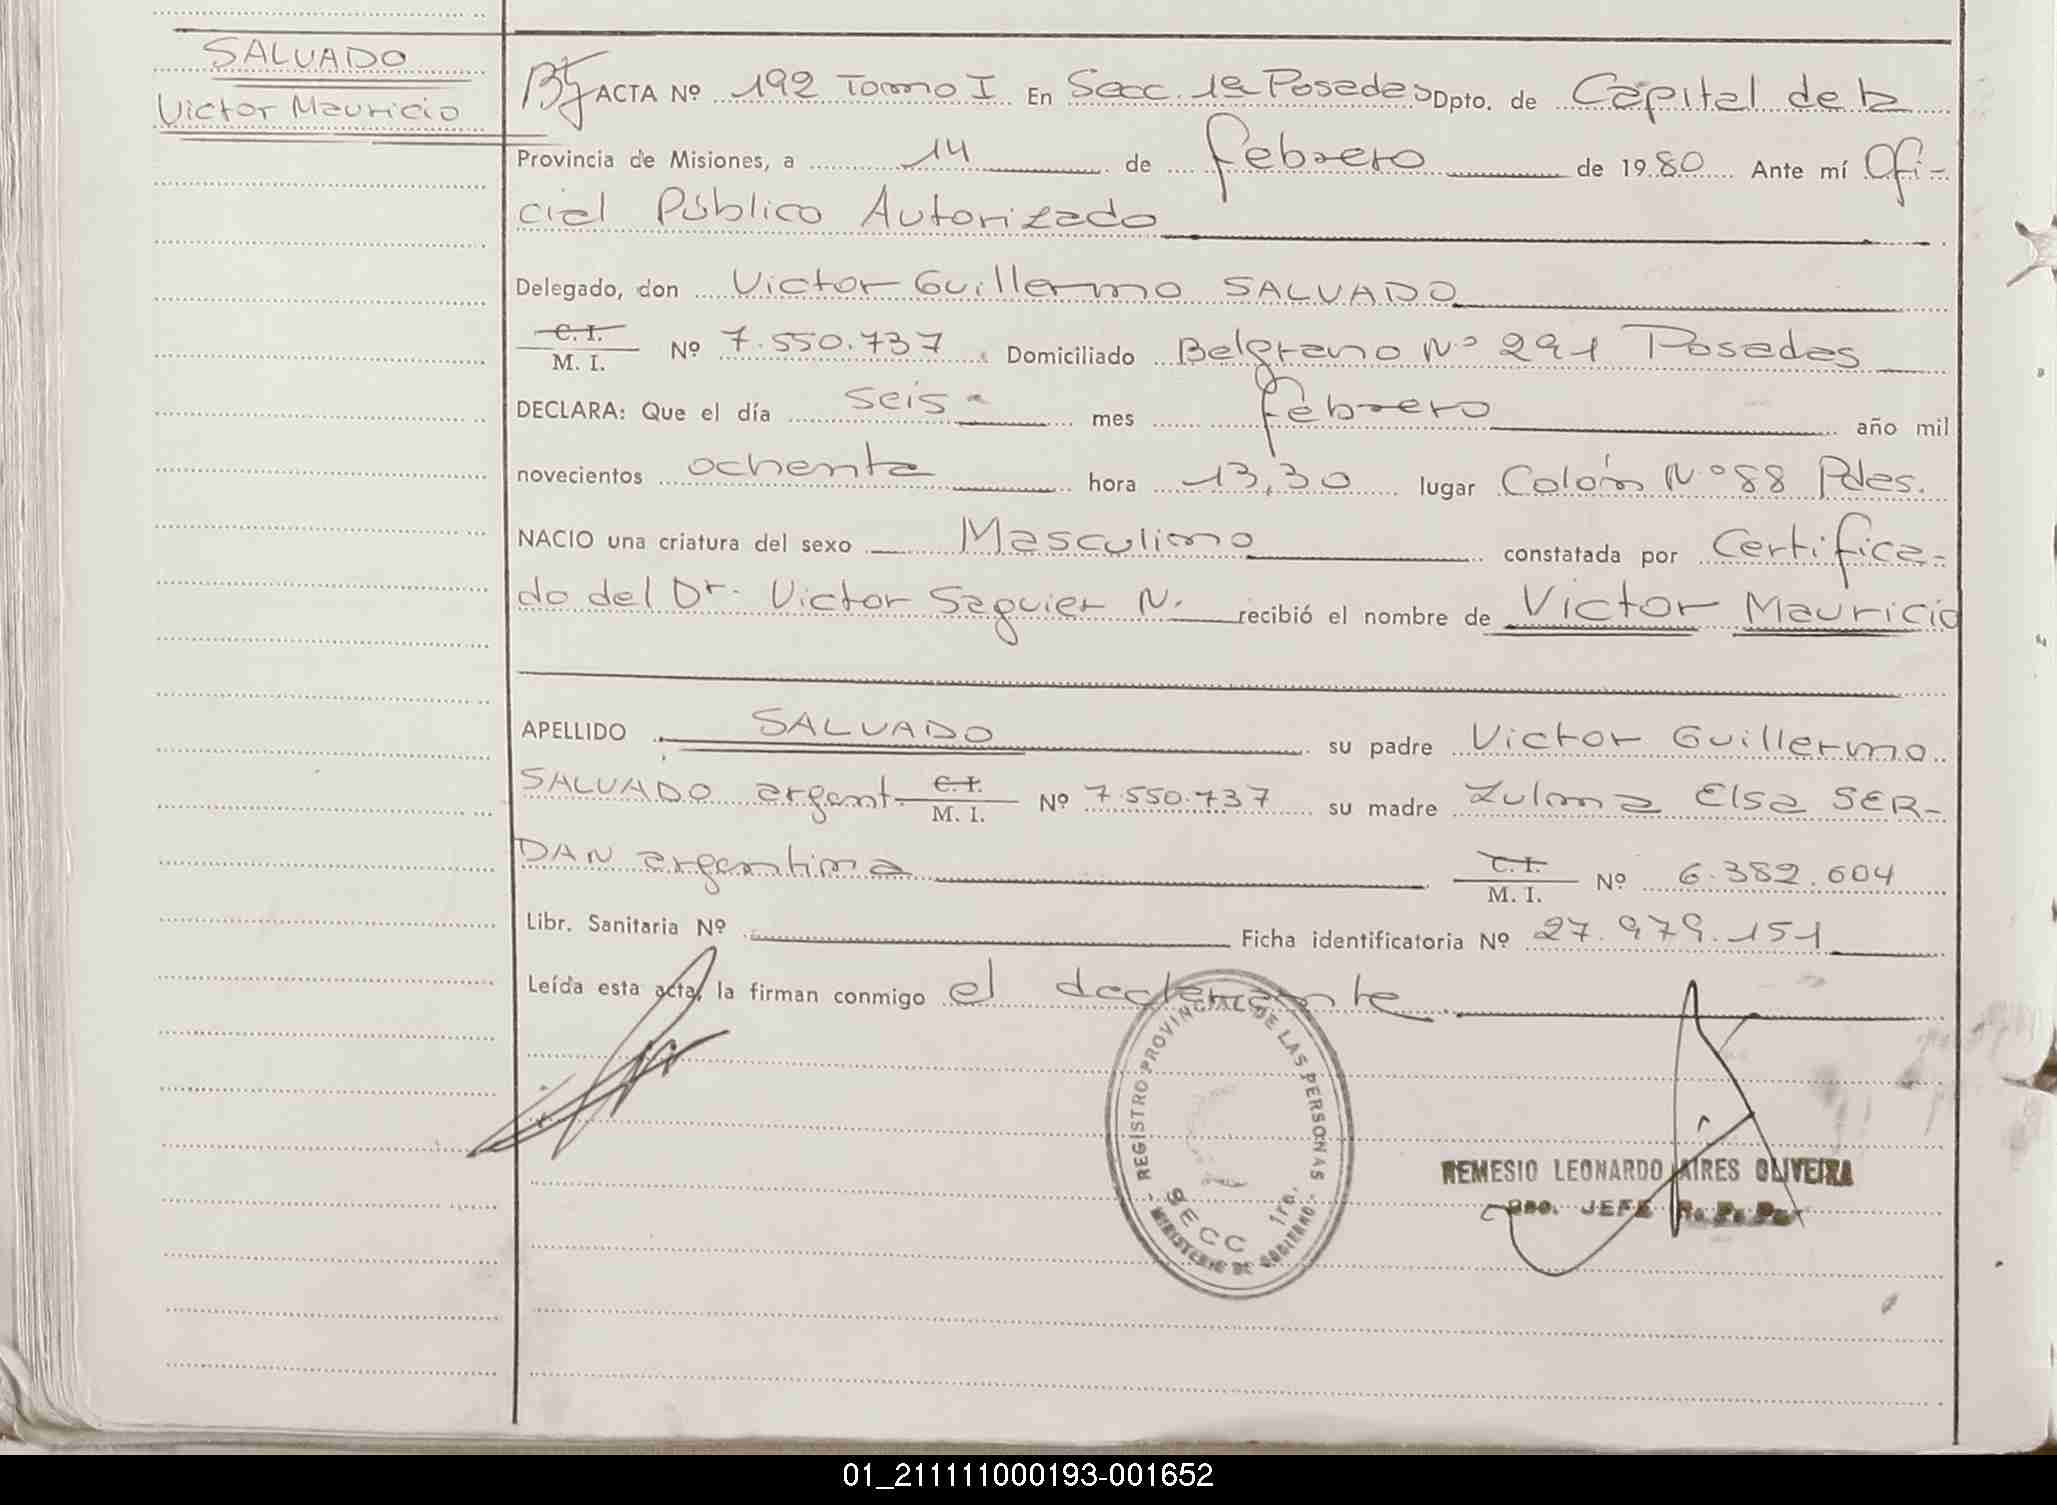 SALVADO
Victor Mauricio
ACTA Nº 192 Tomo I En Secc. 1ª Posadas Dpto. de Capital de la
Provincia de Misiones, a 14 de febrero de 1980 Ante mí Ofi-
cial Público Autorizado
Delegado, don Victor Guillermo SALVADO
C. I.
M. I. Nº 7.550.737 Domiciliado Belgrano Nº 291 Posadas
DECLARA: Que el día seis mes febrero año mil
novecientos ochenta hora 13,30 lugar Colón Nº 88 Pdas.
NACIO una criatura del sexo Masculino constatada por Certifica-
do del Dr. Victor Saguier N. recibió el nombre de Victor Mauricio
APELLIDO SALVADO su padre Victor Guillermo
SALVADO argent. C. I. M. I. Nº 7.550.737 su madre Zulma Elsa SER-
DAN argentina C. I. M. I. Nº 6.382.604
Libr. Sanitaria Nº Ficha identificatoria Nº 27.979.151
Leída esta acta, la firman conmigo el declarante
REGISTRO PROVINCIAL DE LAS PERSONAS
SECC 1ra.
- MINISTERIO DE GOBIERNO -
NEMESIO LEONARDO AIRES OLIVEIRA
JEFE R. P. P.
01_211111000193-001652